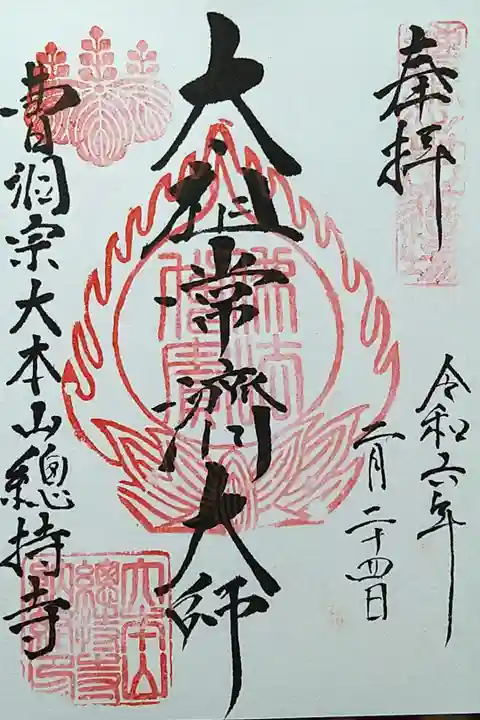 奉拝
令和六年
二月二十四日
太祖常濟大師
曹洞宗大本山總持寺
大本山
總持寺